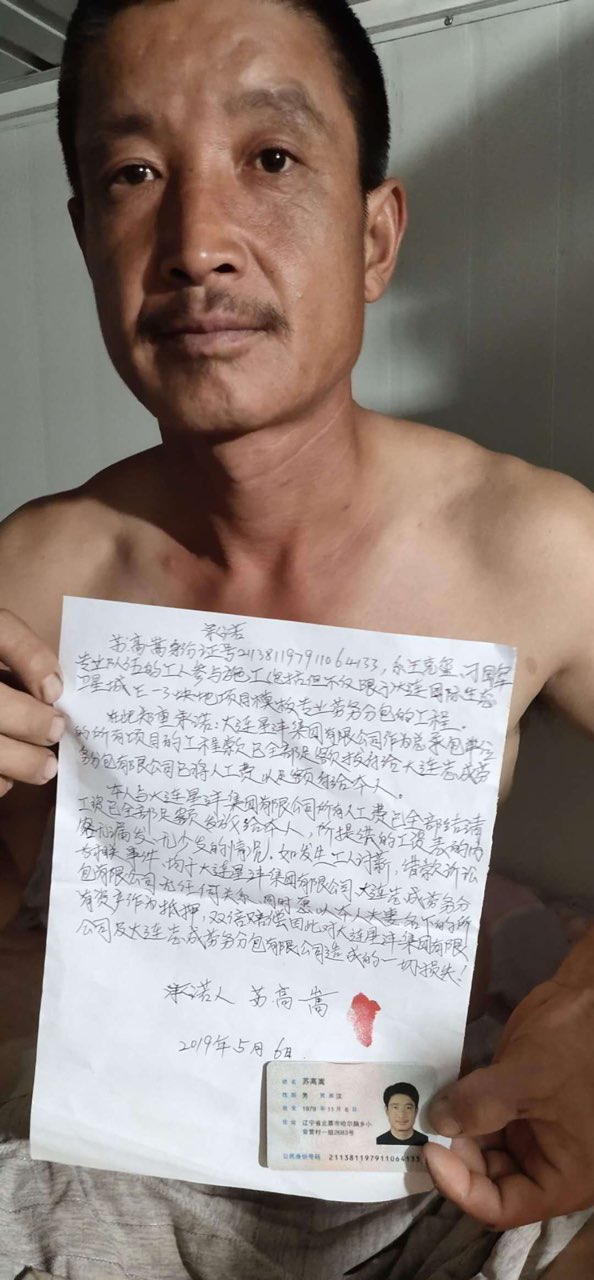 承诺
苏高嵩身份证号211381197911064133,永王克玺、刁国军
专业队伍的工人参与施工包括但不仅限于大连国际生态
卫星城E-3块地项目模板专业劳务分包的工程。
在此郑重承诺:大连星洋集团有限公司作为总承包单位
的所有项目的工程款已全部足额拨付给大连志成劳
务分包有限公司已将人工费 足额付给本人。
本人与大连星洋集团有限公司所有人工费已全部结清
工资已全部足额发放给本人,所提供的工资表的内
容无漏发、无少发的情况。如发生工人讨薪,借款诉讼
等相关事件,均于大连星洋集团有限公司、大连志成劳务分
包有限公司无任何关系,同时愿以本人夫妻名下的所
有资产作为抵押,双倍赔偿因此对大连星洋集团有限
公司及大连志成劳务分包有限公司造成的一切损失!
承诺人 苏高嵩
2019年5月6日.
姓名 苏高嵩
性别 男 民族 汉
出生 1979 年 11 月 6 日
住址 辽宁省北票市哈尔脑乡小
营村一组2683号
公民身份号码 211381197911064133